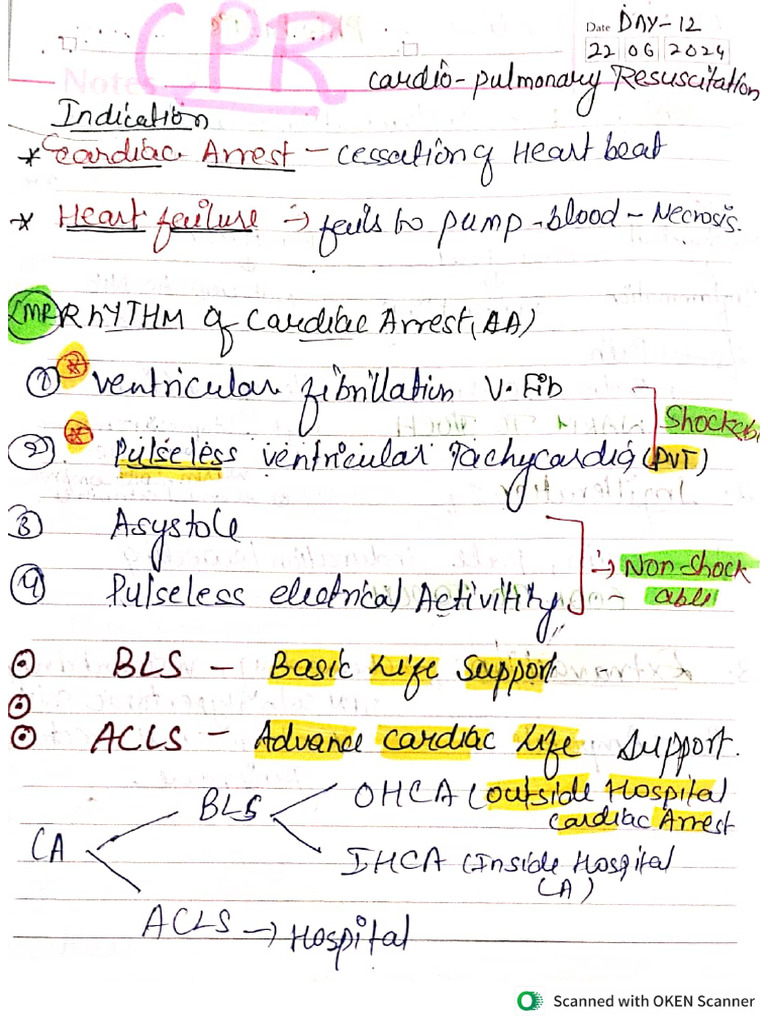 CPR
Date DAY-12
22 06 2024
Notes
Cardio-pulmonary Resuscitation
Indication
* Cardiac Arrest - cessation of Heart beat
* Heart failure → fails to pump - blood - Necrosis.
IMP RHYTHM of Cardiac Arrest (AA)
① * Ventricular fibrillation V. Fib
Shockab
② * Pulseless ventricular Tachycardia (PVT)
③ Asystole
→ Non-Shock
④ Pulseless electrical Activitity - able
BLS - Basic Life Support
ACLS - Advance Cardiac Life Support.
BLS OHCA (outside Hospital
Cardiac Arrest
CA
IHCA (Inside Hospital
CA)
ACLS → Hospital
Scanned with OKEN Scanner